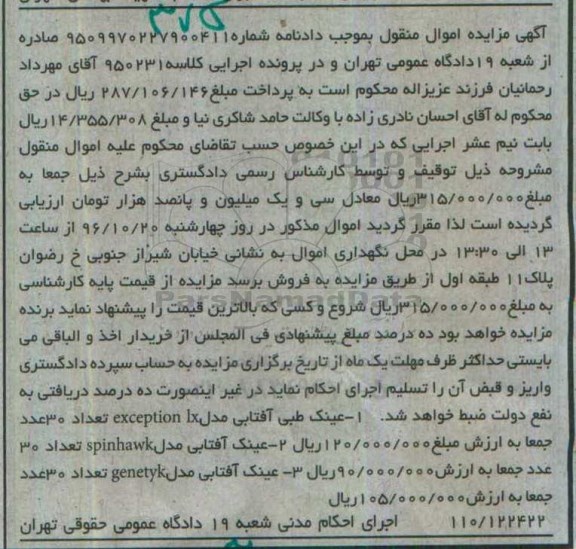 ۳۷۵
آگهی مزایده اموال منقول بموجب دادنامه شماره۹۵۰۹۹۷۰۲۲۷۹۰۰۴۱۱ صادره
از شعبه ۱۹دادگاه عمومی تهران و در پرونده اجرایی کلاسه۹۵۰۲۳۱ آقای مهرداد
رحمانیان فرزند عزیزاله محکوم است به پرداخت مبلغ۲۸۷/۱۰۶/۱۴۶ ریال در حق
محکوم له آقای احسان نادری زاده با وکالت حامد شاکری نیا و مبلغ ۱۴/۳۵۵/۳۰۸ریال
بابت نیم عشر اجرایی که در این خصوص حسب تقاضای محکوم علیه اموال منقول
مشروحه ذیل توقیف و توسط کارشناس رسمی دادگستری بشرح ذیل جمعا به
مبلغ۳۱۵/۰۰۰/۰۰۰ریال معادل سی و یک میلیون و پانصد هزار تومان ارزیابی
گردیده است لذا مقرر گردید اموال مذکور در روز چهارشنبه ۹۶/۱۰/۲۰ از ساعت
۱۳ الی ۱۳:۳۰ در محل نگهداری اموال به نشانی خیابان شیراز جنوبی خ رضوان
پلاک۱۱ طبقه اول از طریق مزایده به فروش برسد مزایده از قیمت پایه کارشناسی
به مبلغ۳۱۵/۰۰۰/۰۰۰ریال شروع و کسی که بالاترین قیمت را پیشنهاد نماید برنده
مزایده خواهد بود ده درصد مبلغ پیشنهادی فی المجلس از خریدار اخذ و الباقی می
بایستی حداکثر ظرف مهلت یک ماه از تاریخ برگزاری مزایده به حساب سپرده دادگستری
واریز و قبض آن را تسلیم اجرای احکام نماید در غیر اینصورت ده درصد دریافتی به
نفع دولت ضبط خواهد شد. ۱-عینک طبی آفتابی مدلexception lx تعداد ۳۰عدد
جمعا به ارزش مبلغ۱۲۰/۰۰۰/۰۰۰ریال ۲-عینک آفتابی مدلspinhawk تعداد ۳۰
عدد جمعا به ارزش۹۰/۰۰۰/۰۰۰ریال ۳- عینک آفتابی مدلgenetyk تعداد ۳۰عدد
جمعا به ارزش۱۰۵/۰۰۰/۰۰۰ریال
۱۱۰/۱۲۲۴۲۲ اجرای احکام مدنی شعبه ۱۹ دادگاه عمومی حقوقی تهران
ParsNamadData